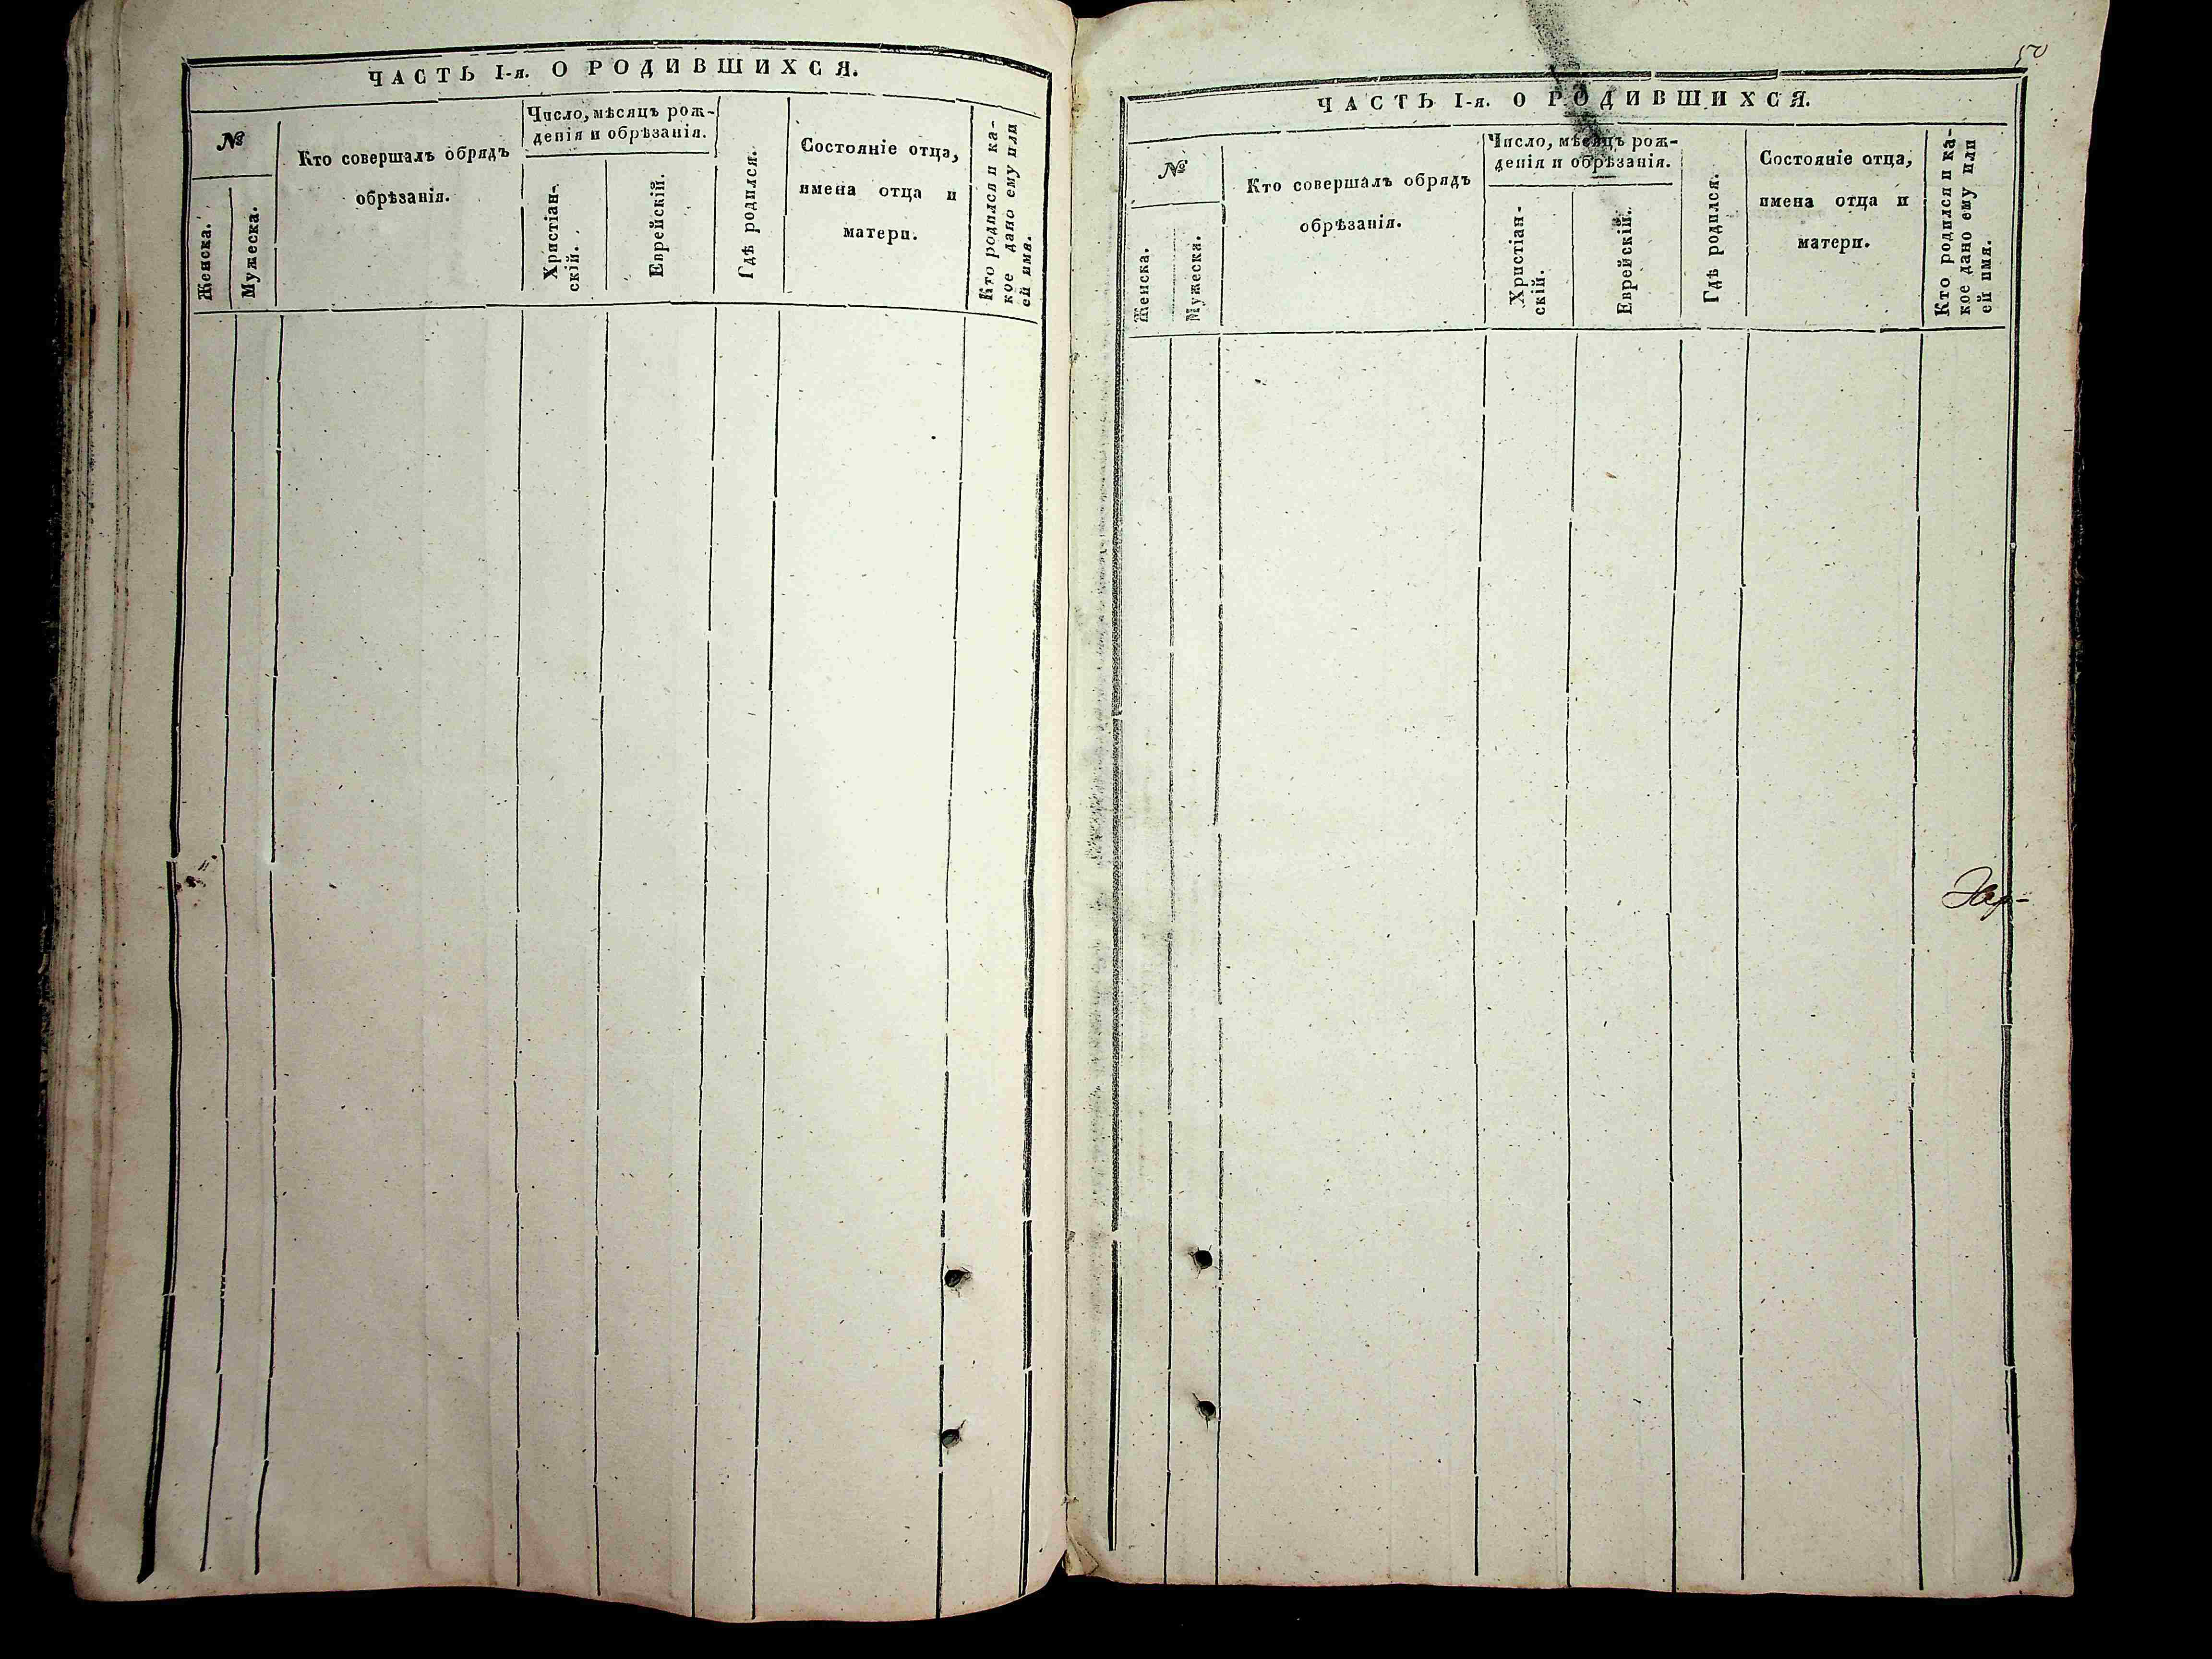 ЧАСТЬ I-я. О РОДИВШИХСЯ.
№
Женска.
Мужеска.
Кто совершалъ обрядъ
обрѣзанія.
Число, мѣсяцъ рож-
денія и обрѣзанія.
Христіан-
скій.
Еврейскій.
Гдѣ родился.
Состояніе отца,
имена отца и
матери.
Кто родился и ка-
кое дано ему или
ей имя.
50
ЧАСТЬ I-я. О РОДИВШИХСЯ.
№
Женска.
Мужеска.
Кто совершалъ обрядъ
обрѣзанія.
Число, мѣсяцъ рож-
денія и обрѣзанія.
Христіан-
скій.
Еврейскій.
Гдѣ родился.
Состояніе отца,
имена отца и
матери.
Кто родился и ка-
кое дано ему или
ей имя.